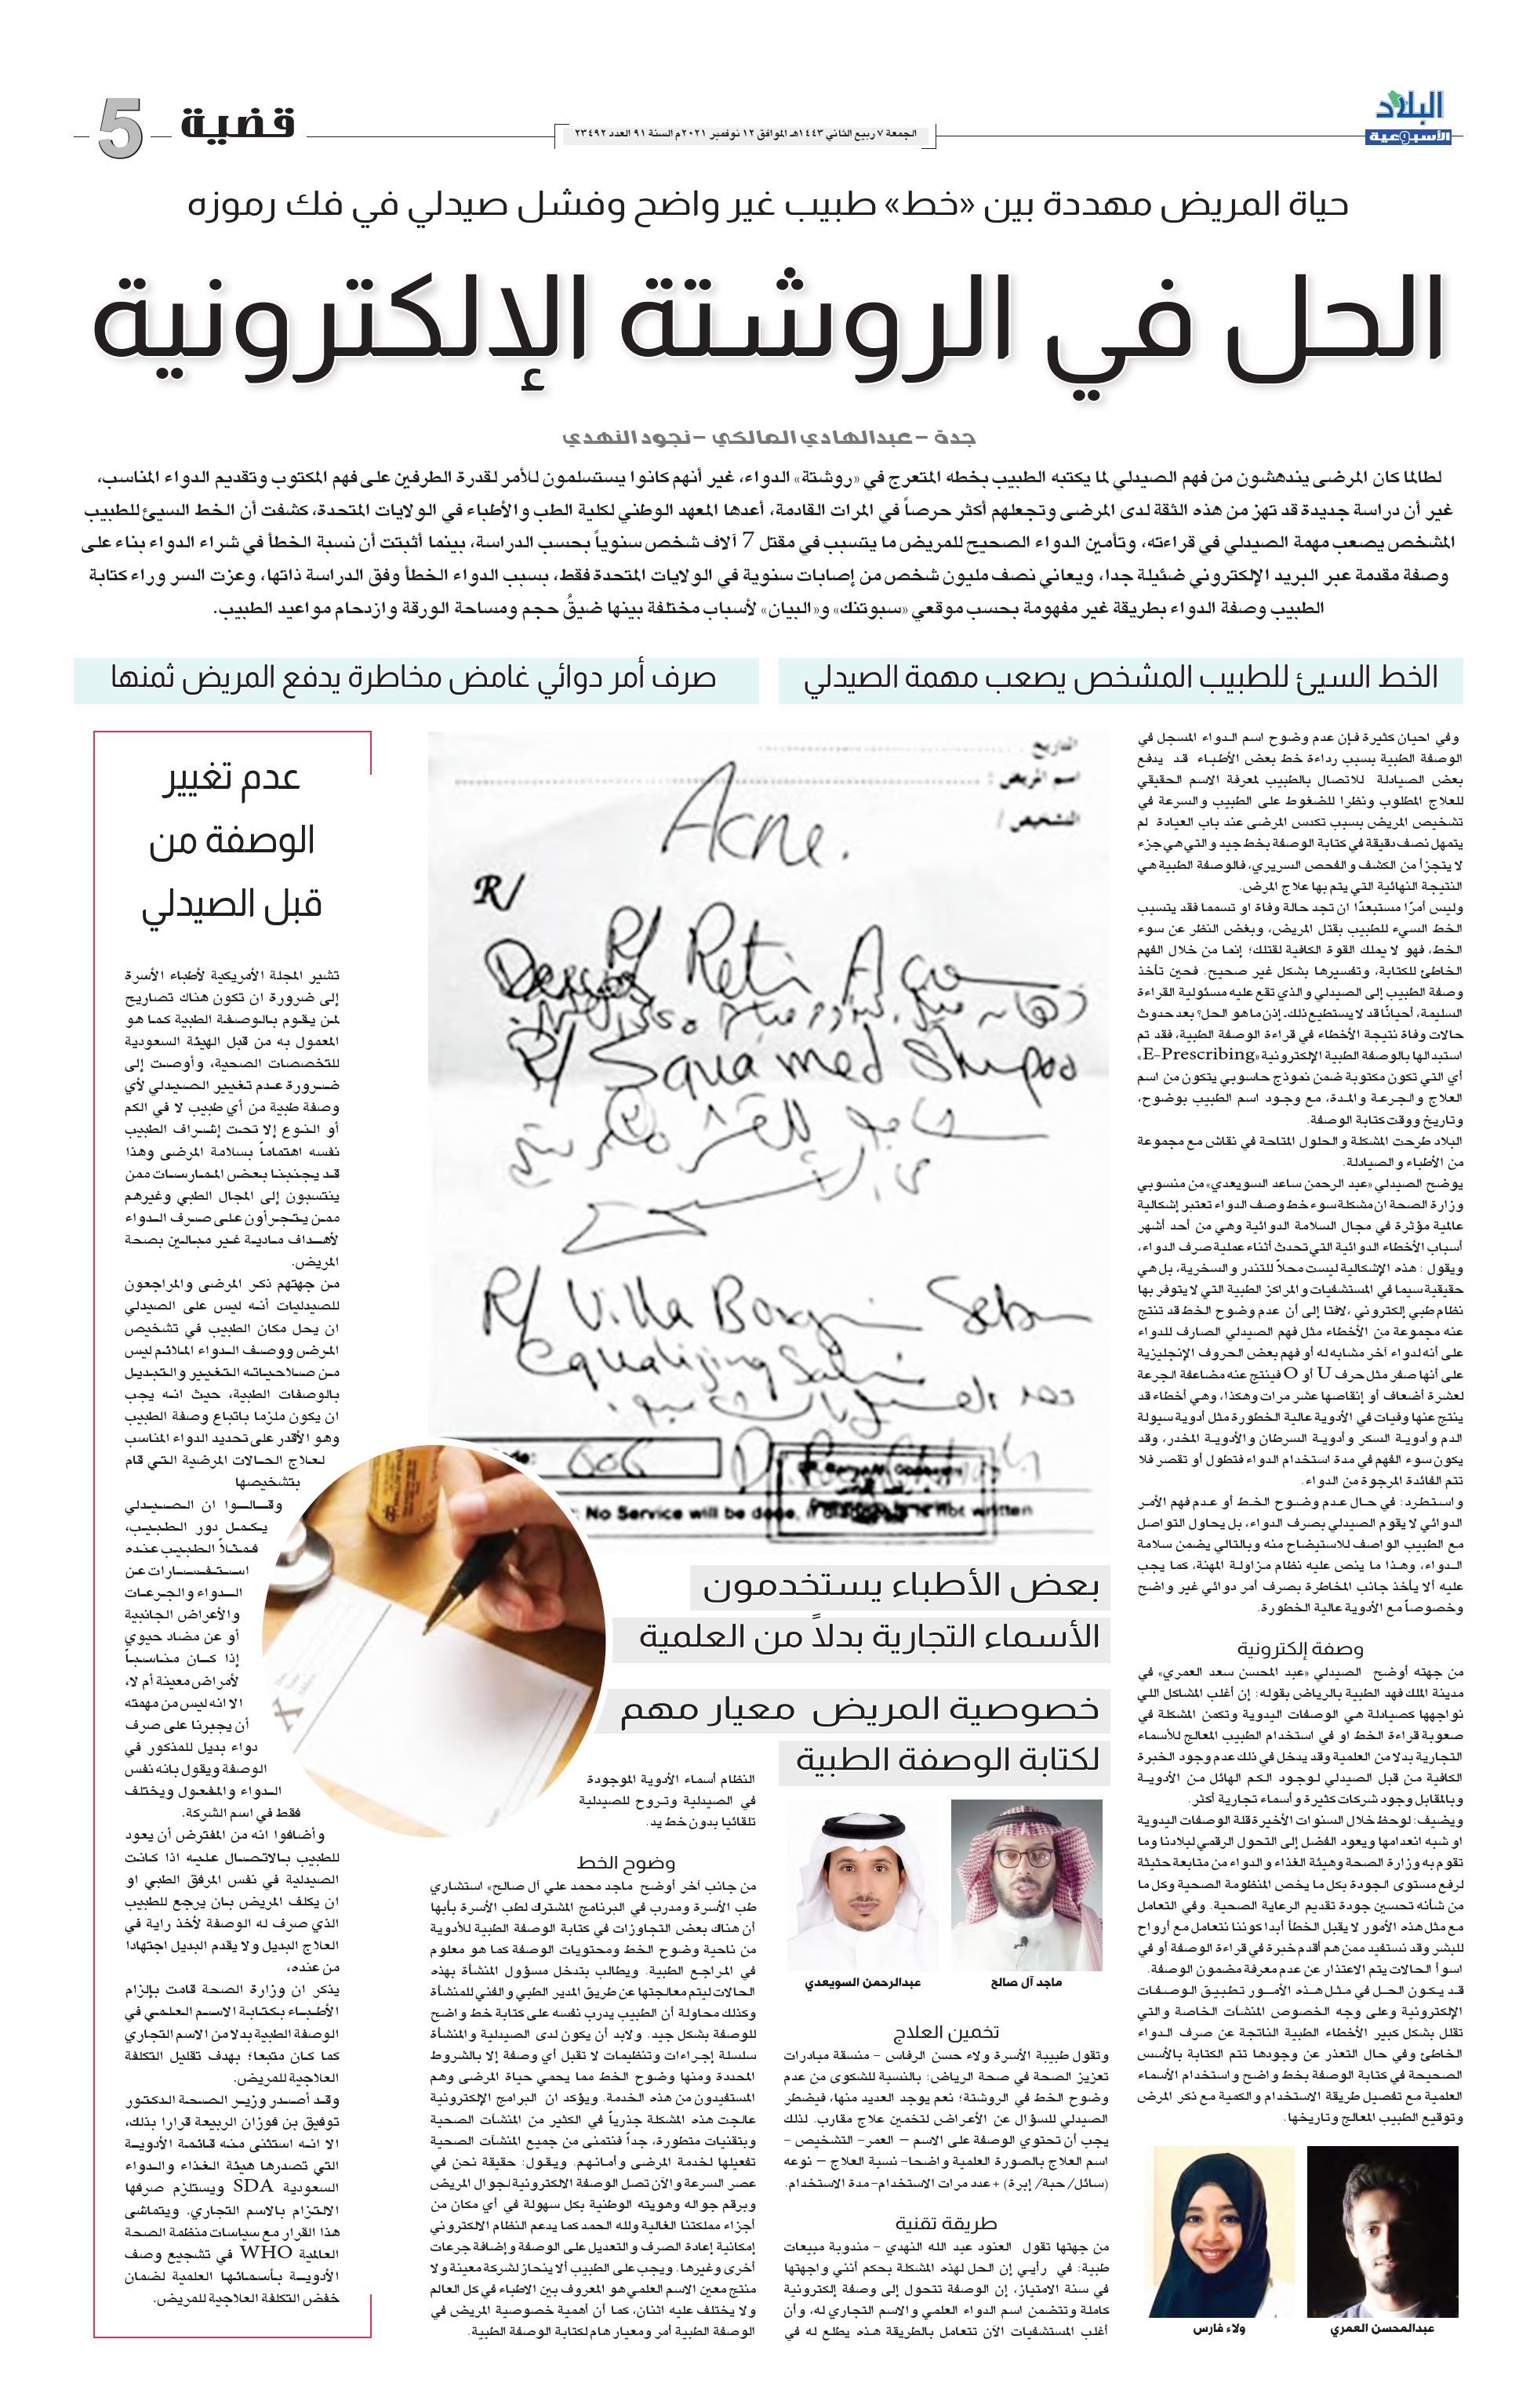 البلاد
الأسبوعية
الجمعة ٧ ربيع الثاني ١٤٤٣هـ الموافق ١٢ نوفمبر ٢٠٢١م السنة ٩١ العدد ٢٣٤٩٢
قضية
5
حياة المريض مهددة بين «خط» طبيب غير واضح وفشل صيدلي في فك رموزه
الحل في الروشتة الإلكترونية
جدة – عبدالهادي المالكي – نجود النهدي
لطالما كان المرضى يندهشون من فهم الصيدلي لما يكتبه الطبيب بخطه المتعرج في «روشتة» الدواء، غير أنهم كانوا يستسلمون للأمر لقدرة الطرفين على فهم المكتوب وتقديم الدواء المناسب،
غير أن دراسة جديدة قد تهز من هذه الثقة لدى المرضى وتجعلهم أكثر حرصاً في المرات القادمة، أعدها المعهد الوطني لكلية الطب والأطباء في الولايات المتحدة، كشفت أن الخط السيئ للطبيب
المشخص يصعب مهمة الصيدلي في قراءته، وتأمين الدواء الصحيح للمريض ما يتسبب في مقتل 7 آلاف شخص سنوياً بحسب الدراسة، بينما أثبتت أن نسبة الخطأ في شراء الدواء بناء على
وصفة مقدمة عبر البريد الإلكتروني ضئيلة جدا، ويعاني نصف مليون شخص من إصابات سنوية في الولايات المتحدة فقط، بسبب الدواء الخطأ وفق الدراسة ذاتها، وعزت السر وراء كتابة
الطبيب وصفة الدواء بطريقة غير مفهومة بحسب موقعي «سبوتنك» و«البيان» لأسباب مختلفة بينها ضيقُ حجم ومساحة الورقة وازدحام مواعيد الطبيب.
الخط السيئ للطبيب المشخص يصعب مهمة الصيدلي
صرف أمر دوائي غامض مخاطرة يدفع المريض ثمنها
وفي احيان كثيرة فإن عدم وضوح اسم الدواء المسجل في
الوصفة الطبية بسبب رداءة خط بعض الأطباء قد يدفع
بعض الصيادلة للاتصال بالطبيب لمعرفة الاسم الحقيقي
للعلاج المطلوب ونظرا للضغوط على الطبيب والسرعة في
تشخيص المريض بسبب تكدس المرضى عند باب العيادة لم
يتمهل نصف دقيقة في كتابة الوصفة بخط جيد و التي هي جزء
لا يتجزأ من الكشف والفحص السريري، فالوصفة الطبية هي
النتيجة النهائية التي يتم بها علاج المرض.
وليس أمرًا مستبعدًا ان تجد حالة وفاة او تسمما فقد يتسبب
الخط السيء للطبيب بقتل المريض، وبغض النظر عن سوء
الخط، فهو لا يملك القوة الكافية لقتلك؛ إنما من خلال الفهم
الخاطئ للكتابة، وتفسيرها بشكل غير صحيح. فحين تأخذ
وصفة الطبيب إلى الصيدلي و الذي تقع عليه مسئولية القراءة
السليمة، أحيانًا قد لا يستطيع ذلك. إذن ما هو الحل؟ بعد حدوث
حالات وفاة نتيجة الأخطاء في قراءة الوصفة الطبية، فقد تم
استبدالها بالوصفة الطبية الإلكترونية «E-Prescribing»
أي التي تكون مكتوبة ضمن نموذج حاسوبي يتكون من اسم
العلاج والجرعة والمدة، مع وجود اسم الطبيب بوضوح،
وتاريخ ووقت كتابة الوصفة.
البلاد طرحت المشكلة والحلول المتاحة في نقاش مع مجموعة
من الأطباء والصيادلة.
يوضح الصيدلي «عبد الرحمن ساعد السويعدي» من منسوبي
وزارة الصحة ان مشكلة سوء خط وصف الدواء تعتبر إشكالية
عالمية مؤثرة في مجال السلامة الدوائية وهي من أحد أشهر
أسباب الأخطاء الدوائية التي تحدث أثناء عملية صرف الدواء،
ويقول : هذه الإشكالية ليست محلاً للتندر والسخرية، بل هي
حقيقية سيما في المستشفيات والمراكز الطبية التي لا يتوفر بها
نظام طبي إلكتروني ،لافتا إلى أن عدم وضوح الخط قد تنتج
عنه مجموعة من الأخطاء مثل فهم الصيدلي الصارف للدواء
على أنه لدواء آخر مشابه له أو فهم بعض الحروف الإنجليزية
على أنها صفر مثل حرف U أو O فينتج عنه مضاعفة الجرعة
لعشرة أضعاف أو إنقاصها عشر مرات وهكذا، وهي أخطاء قد
ينتج عنها وفيات في الأدوية عالية الخطورة مثل أدوية سيولة
الدم وأدوية السكر وأدوية السرطان والأدوية المخدر، وقد
يكون سوء الفهم في مدة استخدام الدواء فتطول أو تقصر فلا
تتم الفائدة المرجوة من الدواء.
واستطرد: في حال عدم وضوح الخط أو عدم فهم الأمر
الدوائي لا يقوم الصيدلي بصرف الدواء، بل يحاول التواصل
مع الطبيب الواصف للاستيضاح منه وبالتالي يضمن سلامة
الدواء، وهذا ما ينص عليه نظام مزاولة المهنة، كما يجب
عليه ألا يأخذ جانب المخاطرة بصرف أمر دوائي غير واضح
وخصوصاً مع الأدوية عالية الخطورة.
وصفة إلكترونية
من جهته أوضح الصيدلي «عبد المحسن سعد العمري» في
مدينة الملك فهد الطبية بالرياض بقوله: إن أغلب المشاكل اللي
نواجهها كصيادلة هي الوصفات اليدوية وتكمن المشكلة في
صعوبة قراءة الخط او في استخدام الطبيب المعالج للأسماء
التجارية بدلا من العلمية وقد يدخل في ذلك عدم وجود الخبرة
الكافية من قبل الصيدلي لوجود الكم الهائل من الأدوية
وبالمقابل وجود شركات كثيرة وأسماء تجارية أكثر.
ويضيف: لوحظ خلال السنوات الأخيرة قلة الوصفات اليدوية
او شبه انعدامها ويعود الفضل إلى التحول الرقمي لبلادنا وما
تقوم به وزارة الصحة وهيئة الغذاء والدواء من متابعة حثيثة
لرفع مستوى الجودة بكل ما يخص المنظومة الصحية وكل ما
من شأنه تحسين جودة تقديم الرعاية الصحية. وفي التعامل
مع مثل هذه الأمور لا يقبل الخطأ أبدا كوننا نتعامل مع أرواح
للبشر وقد نستفيد ممن هم أقدم خبرة في قراءة الوصفة أو في
اسوأ الحالات يتم الاعتذار عن عدم معرفة مضمون الوصفة.
قد يكون الحل في مثل هذه الأمور تطبيق الوصفات
الإلكترونية وعلى وجه الخصوص المنشآت الخاصة والتي
تقلل بشكل كبير الأخطاء الطبية الناتجة عن صرف الدواء
الخاطئ وفي حال التعذر عن وجودها تتم الكتابة بالأسس
الصحيحة في كتابة الوصفة بخط واضح و استخدام الأسماء
العلمية مع تفصيل طريقة الاستخدام والكمية مع ذكر المرض
وتوقيع الطبيب المعالج وتاريخها.
عبدالمحسن العمري
ولاء فارس
التاريخ
اسم المريض :
التشخيص /
Acne.
R/
R/ Reti Acne
R/ Squamed Shapoo
R/ Villa Borgini Sebo
Equalizing
606
No Service will be done, if diagnosis is not written
بعض الأطباء يستخدمون
الأسماء التجارية بدلاً من العلمية
خصوصية المريض معيار مهم
لكتابة الوصفة الطبية
ماجد آل صالح
عبدالرحمن السويعدي
تخمين العلاج
وتقول طبيبة الأسرة ولاء حسن الرفاس – منسقة مبادرات
تعزيز الصحة في صحة الرياض: بالنسبة للشكوى من عدم
وضوح الخط في الروشتة؛ نعم يوجد العديد منها، فيضطر
الصيدلي للسؤال عن الأعراض لتخمين علاج مقارب. لذلك
يجب أن تحتوي الوصفة على الاسم – العمر- التشخيص –
اسم العلاج بالصورة العلمية واضحا- نسبة العلاج – نوعه
(سائل/ حبة/ إبرة) + عدد مرات الاستخدام-مدة الاستخدام.
طريقة تقنية
من جهتها تقول العنود عبد الله النهدي – مندوبة مبيعات
طبية: في رأيي إن الحل لهذه المشكلة بحكم أنني واجهتها
في سنة الامتياز، إن الوصفة تتحول إلى وصفة إلكترونية
كاملة وتتضمن اسم الدواء العلمي والاسم التجاري له، وأن
أغلب المستشفيات الآن تتعامل بالطريقة هذه يطلع له في
النظام أسماء الأدوية الموجودة
في الصيدلية وتروح للصيدلية
تلقائيا بدون خط يد.
وضوح الخط
من جانب آخر أوضح ماجد محمد علي آل صالح» استشاري
طب الأسرة ومدرب في البرنامج المشترك لطب الأسرة بأبها
أن هناك بعض التجاوزات في كتابة الوصفة الطبية للأدوية
من ناحية وضوح الخط ومحتويات الوصفة كما هو معلوم
في المراجع الطبية. ويطالب بتدخل مسؤول المنشأة بهذه
الحالات ليتم معالجتها عن طريق المدير الطبي و الفني للمنشأة
وكذلك محاولة أن الطبيب يدرب نفسه على كتابة خط واضح
للوصفة بشكل جيد. ولابد أن يكون لدى الصيدلية والمنشأة
سلسلة إجراءات وتنظيمات لا تقبل أي وصفة إلا بالشروط
المحددة ومنها وضوح الخط مما يحمي حياة المرضى وهم
المستفيدون من هذه الخدمة. ويؤكد ان البرامج الإلكترونية
عالجت هذه المشكلة جذرياً في الكثير من المنشآت الصحية
وبتقنيات متطورة، جداً فنتمنى من جميع المنشآت الصحية
تفعيلها لخدمة المرضى وأمانهم. ويقول: حقيقة نحن في
عصر السرعة والآن تصل الوصفة الالكترونية لجوال المريض
وبرقم جواله وهويته الوطنية بكل سهولة في أي مكان من
أجزاء مملكتنا الغالية ولله الحمد كما يدعم النظام الالكتروني
إمكانية إعادة الصرف و التعديل على الوصفة وإضافة جرعات
أخرى وغيرها. ويجب على الطبيب ألا ينحاز لشركة معينة و لا
منتج معين الاسم العلمي هو المعروف بين الاطباء في كل العالم
ولا يختلف عليه اثنان، كما أن أهمية خصوصية المريض في
الوصفة الطبية أمر ومعيار هام لكتابة الوصفة الطبية.
عدم تغيير
الوصفة من
قبل الصيدلي
تشير المجلة الأمريكية لأطباء الأسرة
إلى ضرورة ان تكون هناك تصاريح
لمن يقوم بالوصفة الطبية كما هو
المعمول به من قبل الهيئة السعودية
للتخصصات الصحية، وأوصت إلى
ضرورة عدم تغيير الصيدلي لأي
وصفة طبية من أي طبيب لا في الكم
أو النوع إلا تحت إشراف الطبيب
نفسه اهتماماً بسلامة المرضى وهذا
قد يجنبنا بعض الممارسات ممن
ينتسبون إلى المجال الطبي وغيرهم
ممن يتجرأون على صرف الدواء
لأهداف مادية غير مبالين بصحة
المريض.
من جهتهم ذكر المرضى والمراجعون
للصيدليات أنه ليس على الصيدلي
ان يحل مكان الطبيب في تشخيص
المرض ووصف الدواء الملائم ليس
من صلاحياته التغيير والتبديل
بالوصفات الطبية، حيث انه يجب
ان يكون ملزما باتباع وصفة الطبيب
وهو الأقدر على تحديد الدواء المناسب
لعلاج الحالات المرضية التي قام
بتشخيصها
وقالوا ان الصيدلي
يكمل دور الطبيب،
فمثلاً الطبيب عنده
استفسارات عن
الدواء والجرعات
والأعراض الجانبية
أو عن مضاد حيوي
إذا كان مناسباً
لأمراض معينة أم لا،
الا انه ليس من مهمته
أن يجبرنا على صرف
دواء بديل للمذكور في
الوصفة ويقول بانه نفس
الدواء والمفعول ويختلف
فقط في اسم الشركة.
وأضافوا انه من المفترض أن يعود
للطبيب بالاتصال عليه اذا كانت
الصيدلية في نفس المرفق الطبي او
ان يكلف المريض بان يرجع للطبيب
الذي صرف له الوصفة لأخذ راية في
العلاج البديل ولا يقدم البديل اجتهادا
من عنده،
يذكر ان وزارة الصحة قامت بإلزام
الأطباء بكتابة الاسم العلمي في
الوصفة الطبية بدلا من الاسم التجاري
كما كان متبعا؛ بهدف تقليل التكلفة
العلاجية للمريض.
وقد أصدر وزير الصحة الدكتور
توفيق بن فوزان الربيعة قرارا بذلك،
الا انه استثنى منه قائمة الأدوية
التي تصدرها هيئة الغذاء والدواء
السعودية SDA ويستلزم صرفها
الالتزام بالاسم التجاري. ويتماشى
هذا القرار مع سياسات منظمة الصحة
العالمية WHO في تشجيع وصف
الأدوية بأسمائها العلمية لضمان
خفض التكلفة العلاجية للمريض.